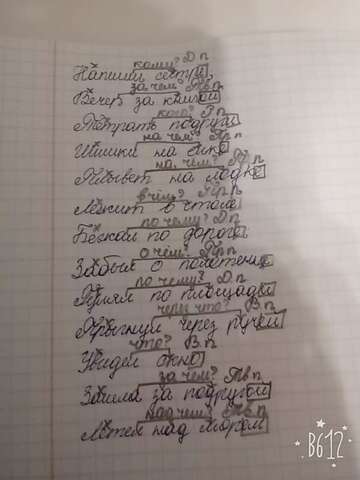 кому? Д п
Напиши сестре
за чем? Тв п
Вечер за книгой
кого? Р п
Тетрадь подруги
на чём? Пр п
Шишки на ёлке
на чём? Пр п
Плывёт на лодке
в чём? Пр п
Лежит в столе
по чему? Д п
Бежал по дороге
о чём? Пр п
Забыл о полотенце
по чему? Д п
Гулял по площади
через что? В п
Прыгнул через ручей
что? В п
Увидел окно
за чем? Тв п
Зашла за подругой
над чем? Тв п
Летел над морем
B612